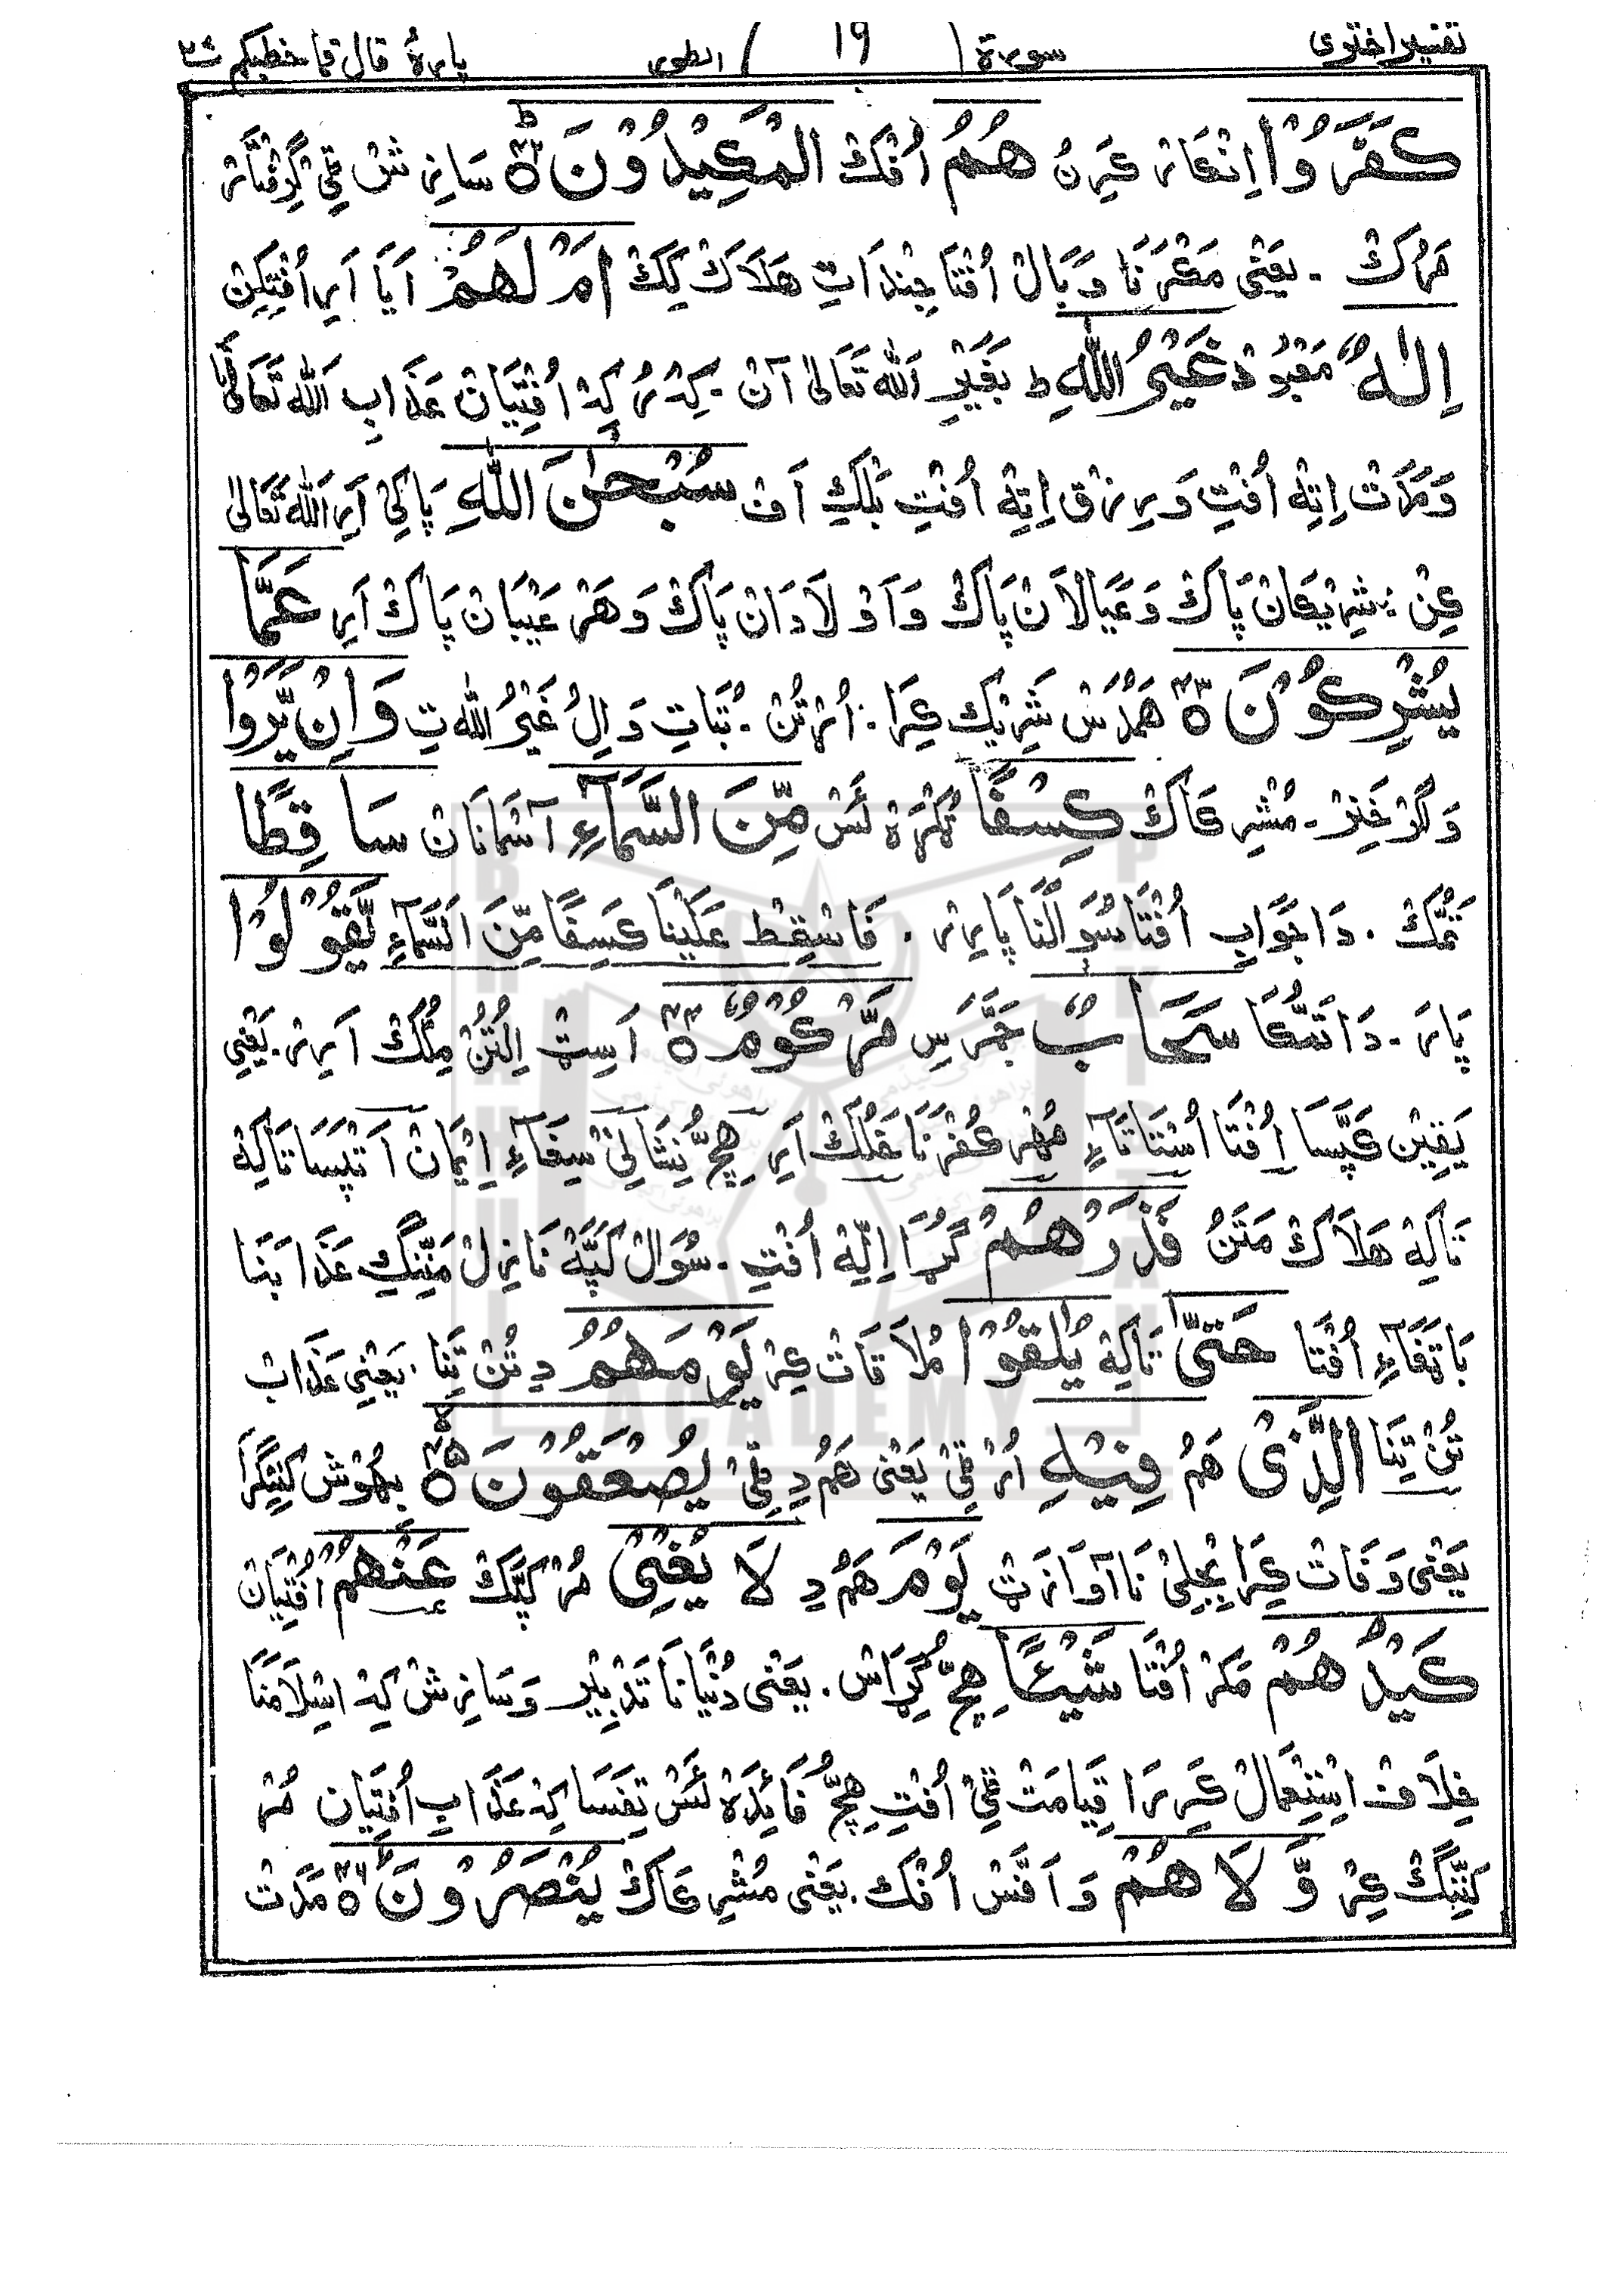 تفسیر اختوی سورة ( 19 ) الطور پارۀ قال فما خطبکم ۲۷
كَفَرُوْا اِنْکار کَرِنُ هُمُ اُفْکْ الْمَكِيْدُوْنَ ۝۴۲ سَازِشْ ٹِی گِرِفْتَار
مَرُکْ - یَعْنِی مَکْرَنَا وَبَالْ اُفْتَا جِنْدَاتِ هَلَاکْ کِکْ اَمْ لَهُمْ اَیَا اَرِ اُفْتِکِنْ
اِلٰهٌ مَعْبُوْدْ غَيْرُ اللّٰهِ ط بَغَیْرِ اَللّٰه تَعَالیٰ آنْ - کِدْرُ کِهْ اُفْتِیَانْ عَذَابِ اَللّٰه تَعَالیٰ نَا
وَمَدَتْ اِتِهْ اُفْتِ وَرِزْق اِتِهْ اُفْتِ بَلْکِ اَفْ سُبْحٰنَ اللّٰهِ پَاکِی اَرِ اَللّٰه تَعَالیٰ
کِنْ : شِرِیْکَانْ پَاکْ وَعَیَالَانْ پَاکْ وَاَوْلَادَانْ پَاکْ وَهَرْ عَیْبَانْ پَاکْ اَرِ عَمَّا
يُشْرِكُوْنَ ۝۴۳ هَمْدُسْ شَرِیْک کِرَا . اُرْتُنْ . بُتَاتِ وَ اِلُ غَیْرُ اللّٰه تِ وَاِنْ يَّرَوْا
وَگَرْ خَنِرْ - مُشْرِکَاکْ كِسْفًا ٹُکْرَهْ ئَسْ مِّنَ السَّمَآءِ آسْمَانَانْ سَاقِطًا
تَمُّکْ . دَا جَوَابِ اُفْتَا سُوَالْنَا پَارِرْ . فَاسْقِطْ عَلَیْنَا کَسِفًا مِّنَ السَّمَآءِ يَّقُوْلُوْا
پَارَ - دَا تَنْکَا سَحَابٌ جَمَّرَسِ مَّرْكُوْمٌ ۝۴۴ اَسِٹْ اِلْتُنْ مِلُّکْ اَرِرْ - یَعْنِی
یَقِیْن کَپَّسَا اُفْتَا اُسْتَاتَآءِ مُهْر کُفْرَنَا خَلُکْ اَرِ هِچُّ نِشَانِیْ سِفَآءِ اِیْمَانْ اَتَپَسَا تَاکِهْ
تَاکِهْ هَلَاکْ مَتَنُ فَذَرْهُمْ گُڑَا اِلِّهْ اُفْتِ . سُوَالْ کَپَّهْ نَازِلْ مَنِّنْگِ عَذَابَنَا
بَاتْفَآءِ اُفْتَا حَتّٰى تَاکِهْ يُلٰقُوْا مُلَاقَاتْ کِرْ يَوْمَهُمُ دِ تُنْ تِّنَا . یَعْنِی عَذَابْ
تُنْ تِّنَا الَّذِىْ هَمُ فِيْهِ اُرْ ٹِیْ یَعْنِی هَمُ دِ ٹِیْ يُصْعَقُوْنَ ۝۴۵ بِیهُوْش کَنِنْگِرَا
یَعْنِی وَفَاتْ کِرَا بِجْلِیْ نَا آوَازَٹْ يَوْمَ هَمُ دِ لَا يُغْنِىْ مُرْ کَپَّکْ عَنْهُمْ اُفْتِیَانْ
كَيْدُهُمْ مَکْر اُفْتَا شَيْـًٔا هِچُّ کُرَاسْ . یَعْنِی دُنْیَانَا تَدْبِیْر وَسَازِشْ کِهْ اِسْلَامَنَا
خِلَافْ اِسْتِعْمَالْ کَرِرَا قِیَامَتْ ٹِیْ اُفْتِ هِچُّ فَائِدَهْ ئَسْ تِفَسَا کِهْ عَذَابِ اُفْتِیَانْ مُرْ
کَنِنْگْ کِرْ وَّلَا هُمْ وَ اَفَّسْ اُفْکْ . یَعْنِی مُشْرِکَاکْ يُنْصَرُوْنَ ۝۴۶ مَدَتْ
ACADEMY